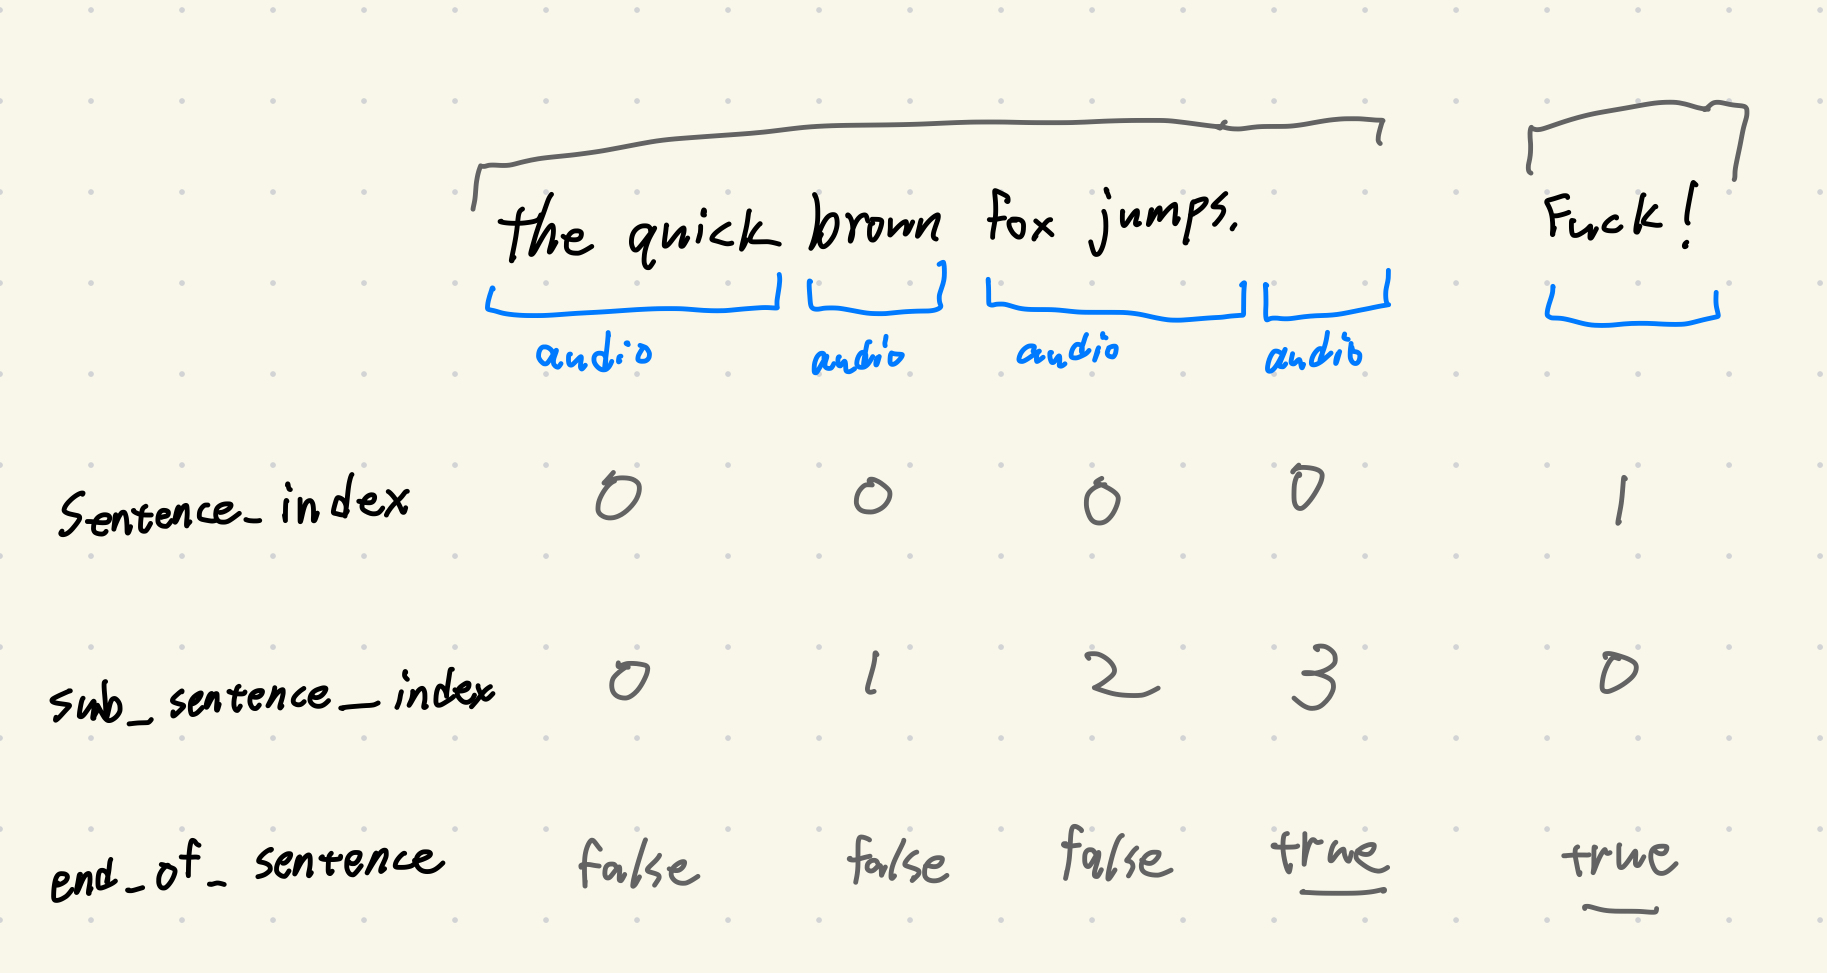 the quick brown fox jumps. Fuck!
audio audio audio audio
Sentence_index 0 0 0 0 1
sub_sentence_index 0 1 2 3 0
end_of_sentence false false false true true